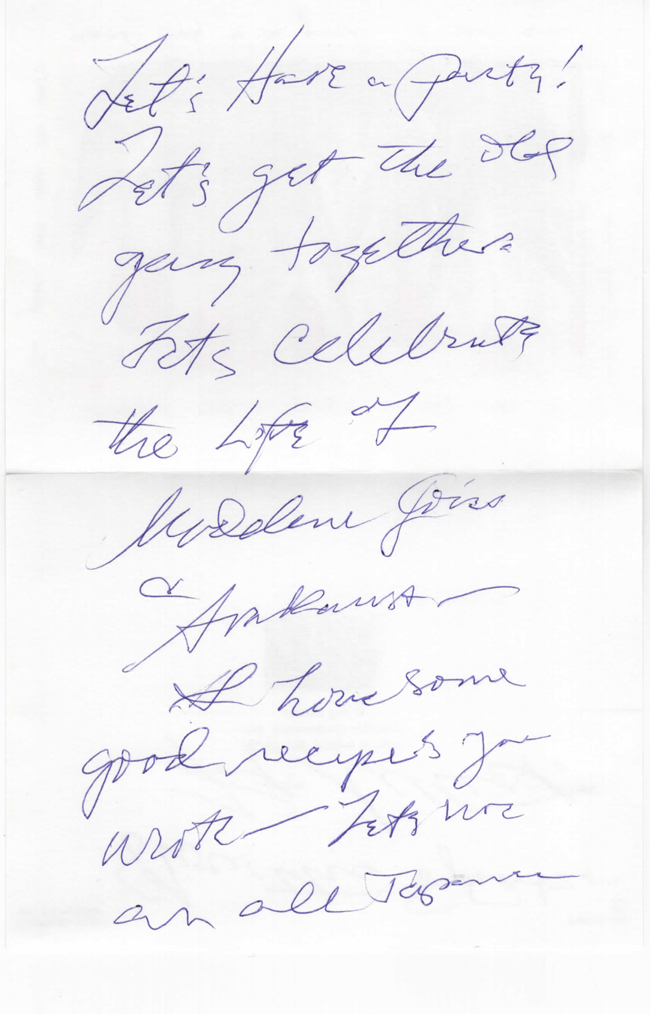 Let's Have a party!
Let's get the old
gang together.
Lets celebrate
the Life of
Madeline Gins
& Arakawa —
I have some
good recipes you
wrote — Lets have
an all Japanese